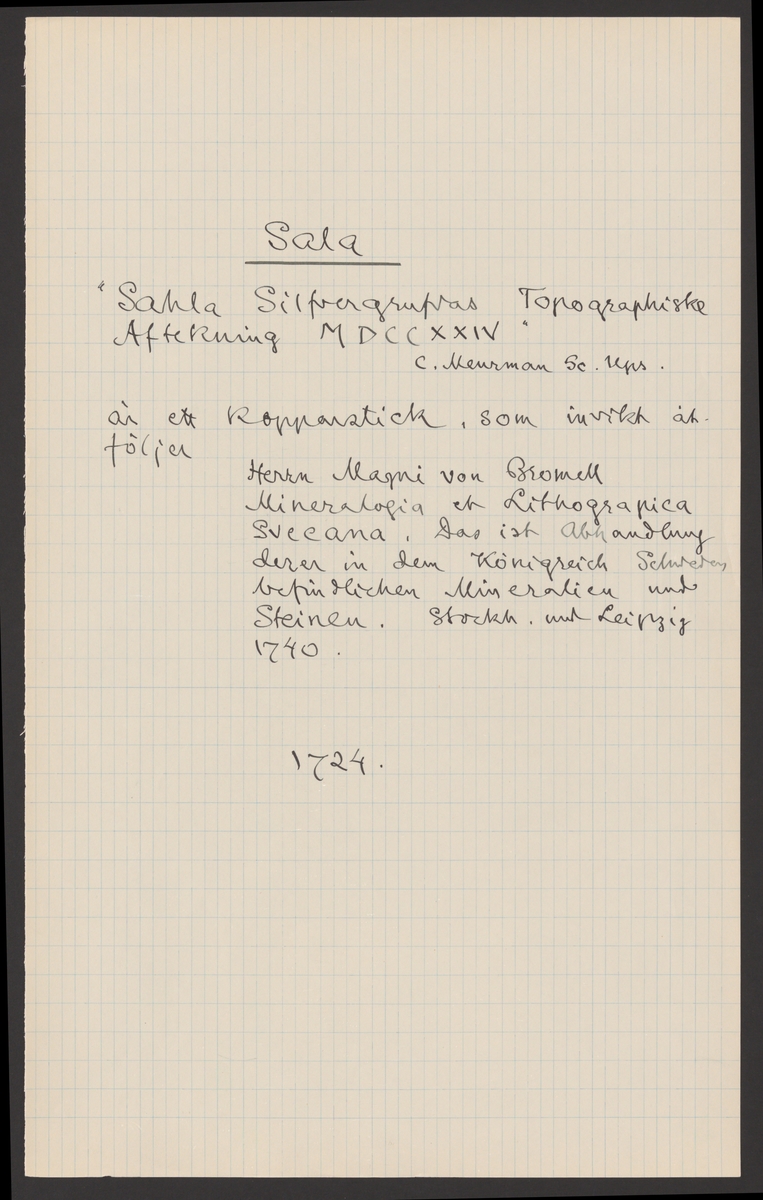 Sala
"Sahla Silfvergrufvas Topographiske
Aftekning MDCCXXIV"
C. Meurman Sc. Ups.
är ett kopparstick, som invikt åt-
följer
Herrn Magni von Bromell
Mineralogia et Lithograpica
Svecana. Das ist Abhandlung
derer in dem Königreich Schweden
befindlichen Mineralien und
Steinen. Stockh. und Leipzig
1740.
1724.